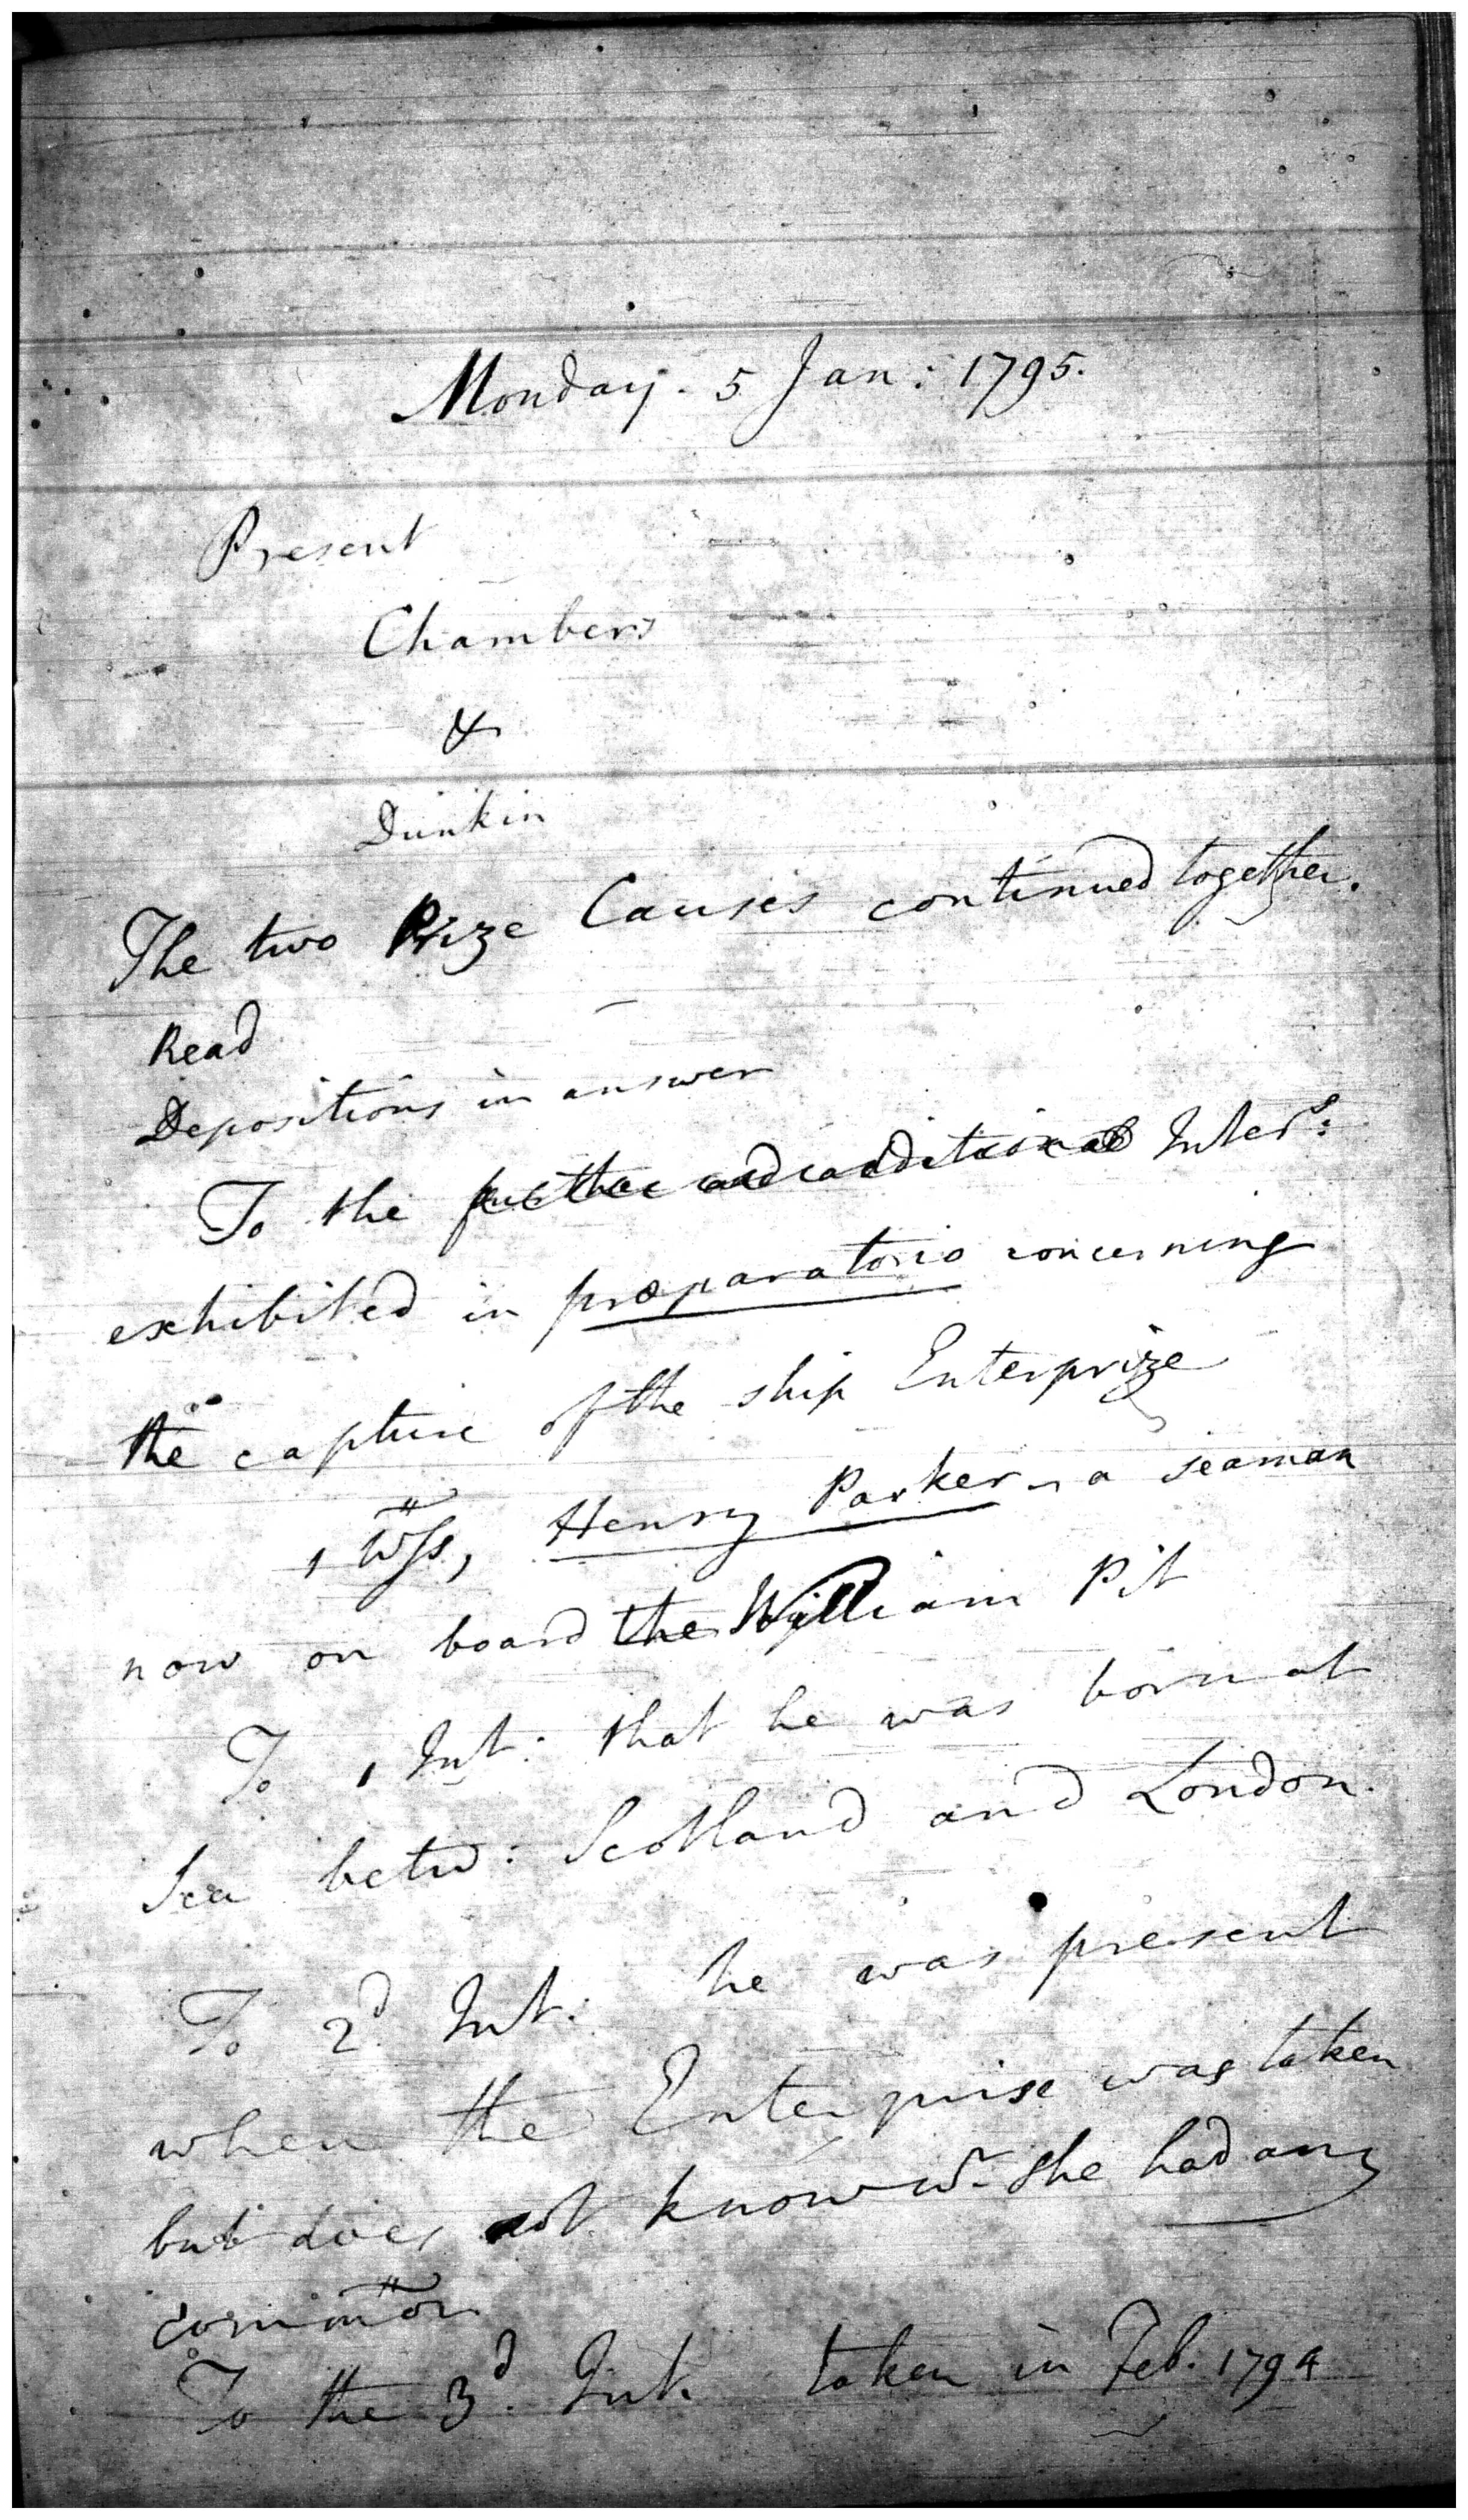 Monday. 5 Jan: 1795.
Present
Chambers
&
Dunkin
The two Prize Causes continued together.
Read
Depositions in answer
To the further and additional Inters:
exhibited in præparatorio concerning
the capture of the ship Enterprize
1 Wss, Henry Parker, a seaman
now on board the William Pit
To 1 Int: that he was born at
Sea betw: Scotland and London.
To 2d Int: he was present
when the Enterprise was taken
but does not know wr. she had any
common
To the 3d. Int. taken in Feb. 1794